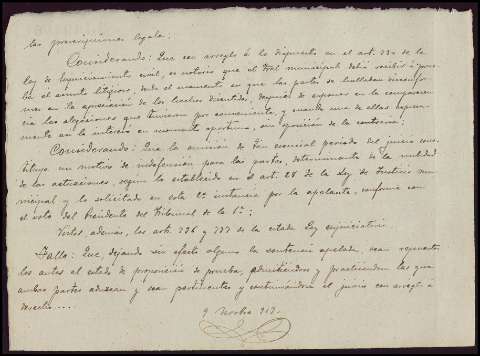 las prescripciones legales;
Considerando: Que con arreglo á lo dispuesto en el art. 730 de la
Ley de Enjuiciamiento civil, es notorio que el Tbal municipal debió recibir á prue-
ba el asunto litigioso, desde el momento en que las partes se hallaban disconfor-
mes en la apreciación de los hechos discutidos, después de exponer en la comparecen-
cia las alegaciones que tuvieron por conveniente, y cuando una de ellas expresa-
mente así lo interesó en momento oportuno, sin oposición de la contraria;
Considerando: Que la omisión de tan esencial período del juicio cons-
tituye un motivo de indefensión para las partes, determinante de la nulidad
de las actuaciones, según lo establecido en el art. 28 de la Ley de Justicia mu-
nicipal y lo solicitado en esta 2ª instancia por la apelante, conforme con
el voto del Presidente del Tribunal de la 1ª;
Vistos, además, los arts. 736 y 737 de la citada Ley enjuiciatoria.
Fallo: Que, dejando sin efecto alguno la sentencia apelada, sean repuestos
los autos al estado de proposición de prueba, admitiéndose y practicándose las que
ambas partes aduzcan y sean pertinentes y continuándose el juicio con arreglo á
derecho....
9 Novbre 912.